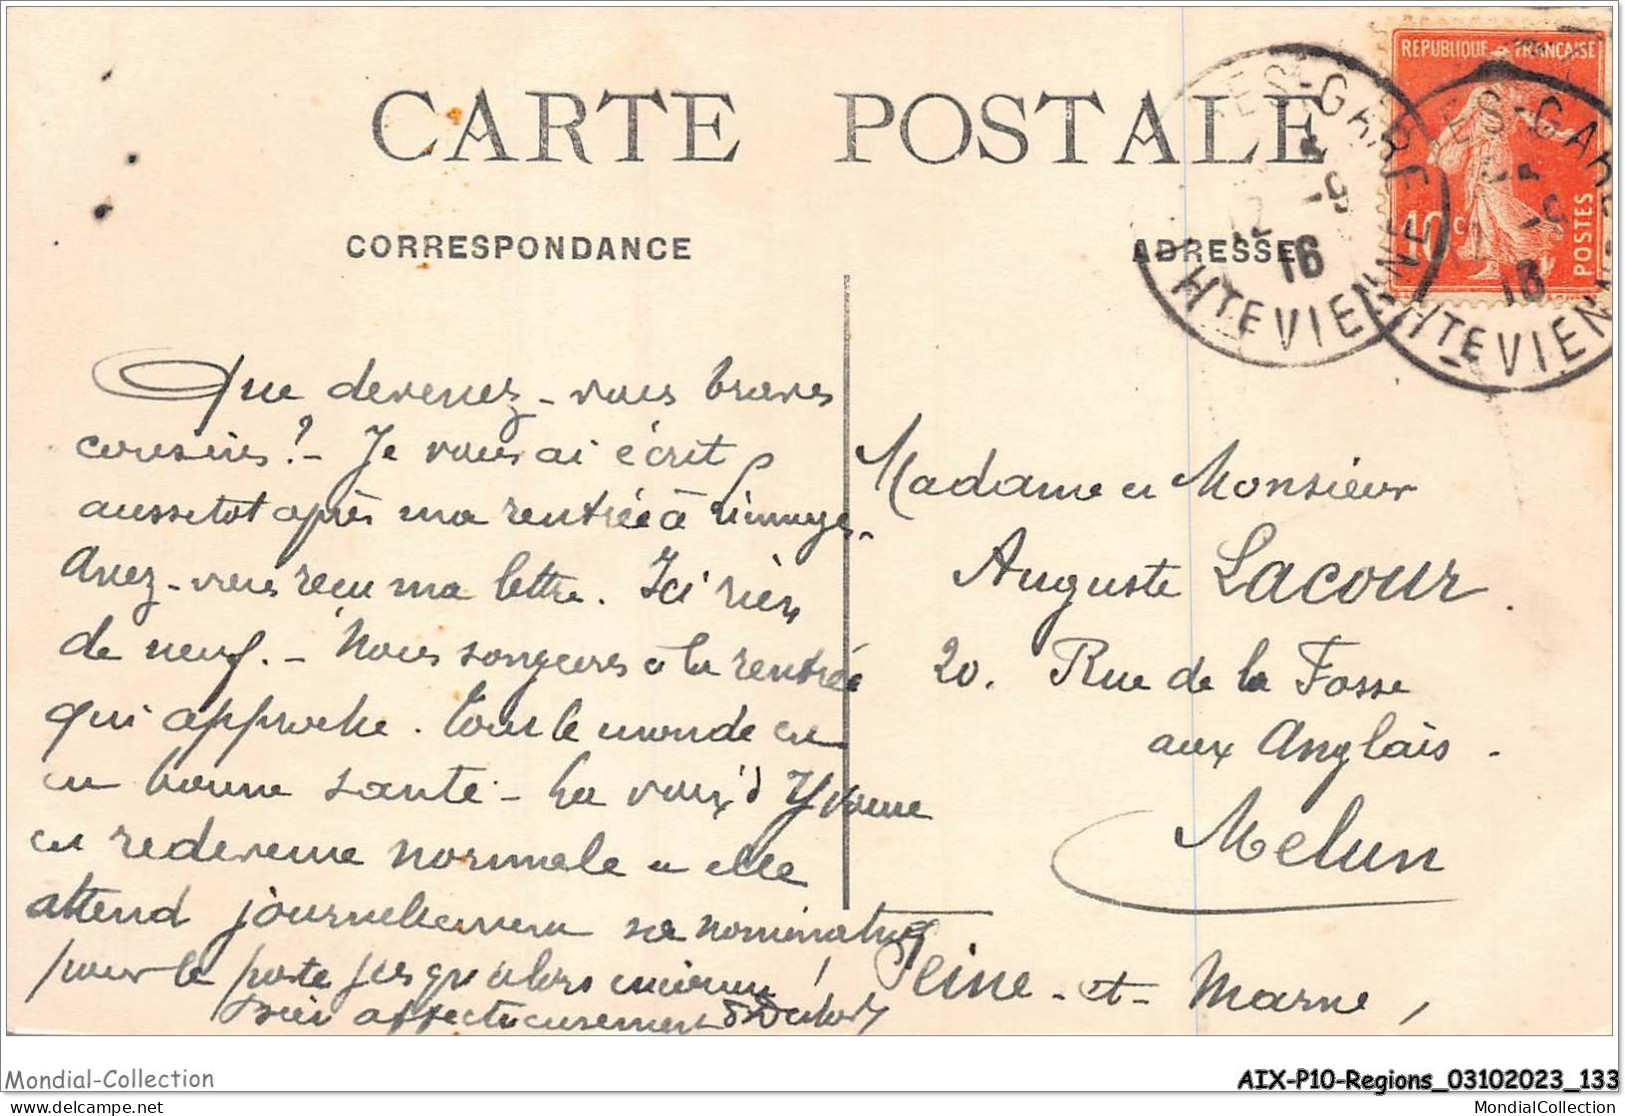 CARTE POSTALE
CORRESPONDANCE
ADRESSE
REPUBLIQUE FRANÇAISE
10c
POSTES
ES-GARE
12 -9
16
HTE VIENNE
ES-GARE
-9
16
HTE VIENN
Que devenez-vous braves
cousins? - Je vous ai écrit
aussitot après ma rentrée à Limoges.
Avez-vous reçu ma lettre. Ici rien
de neuf. - Nous songeons à la rentrée
qui approche. Tout le monde est
en bonne santé - La voix d'Yvonne
est redevenue normale et elle
attend journellement sa nomination
pour le poste jusqu'alors inconnu !
Bien affectueusement
Madame et Monsieur
Auguste Lacour.
20. Rue de la Fosse
aux Anglais -
Melun
Seine-et-Marne,
Mondial-Collection
AIX-P10-Regions_03102023_133
delcampe.net
MondialCollection